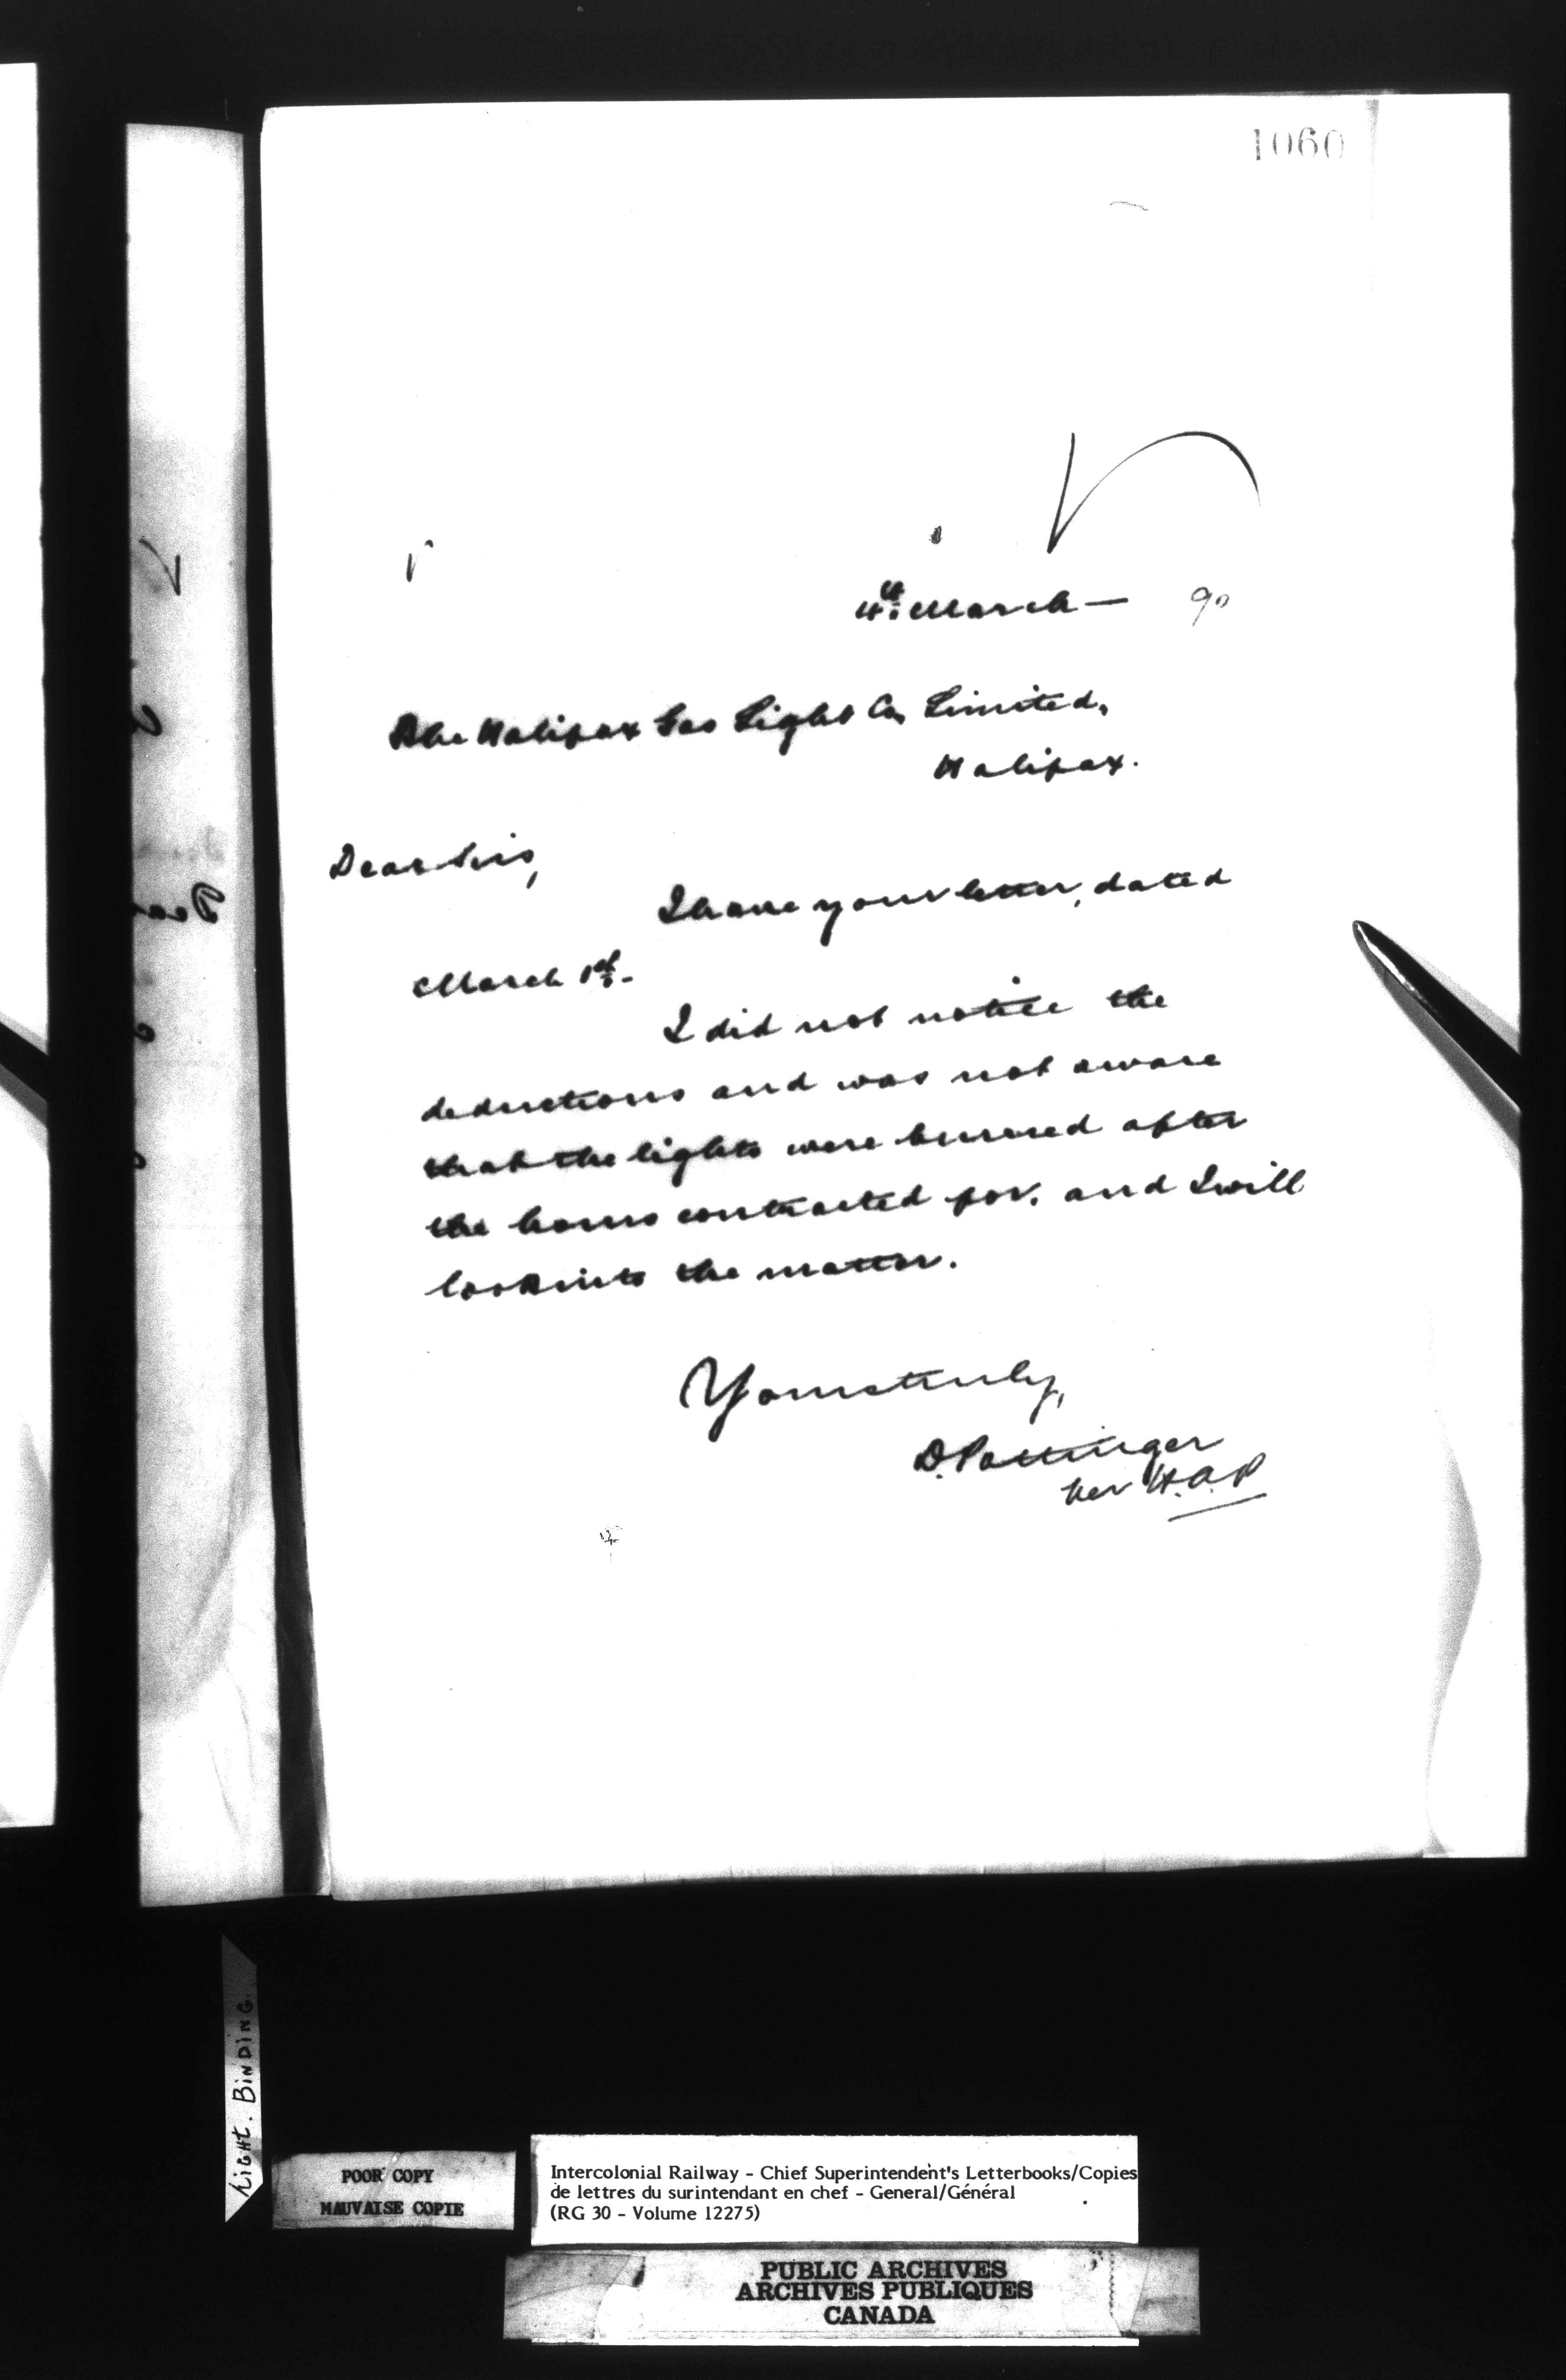 1060
4th March — 90
The Halifax Gas Light Co, Limited,
Halifax.
Dear Sirs,
I have your letter, dated
March 1st.
I did not notice the
deductions and was not aware
that the lights were burned after
the hours contracted for, and I will
look into the matter.
Yours truly,
D. Pottinger
per H.A.P
LIGHT. BINDING.
POOR COPY
MAUVAISE COPIE
Intercolonial Railway - Chief Superintendent's Letterbooks/Copies
de lettres du surintendant en chef - General/Général
(RG 30 - Volume 12275)
PUBLIC ARCHIVES
ARCHIVES PUBLIQUES
CANADA